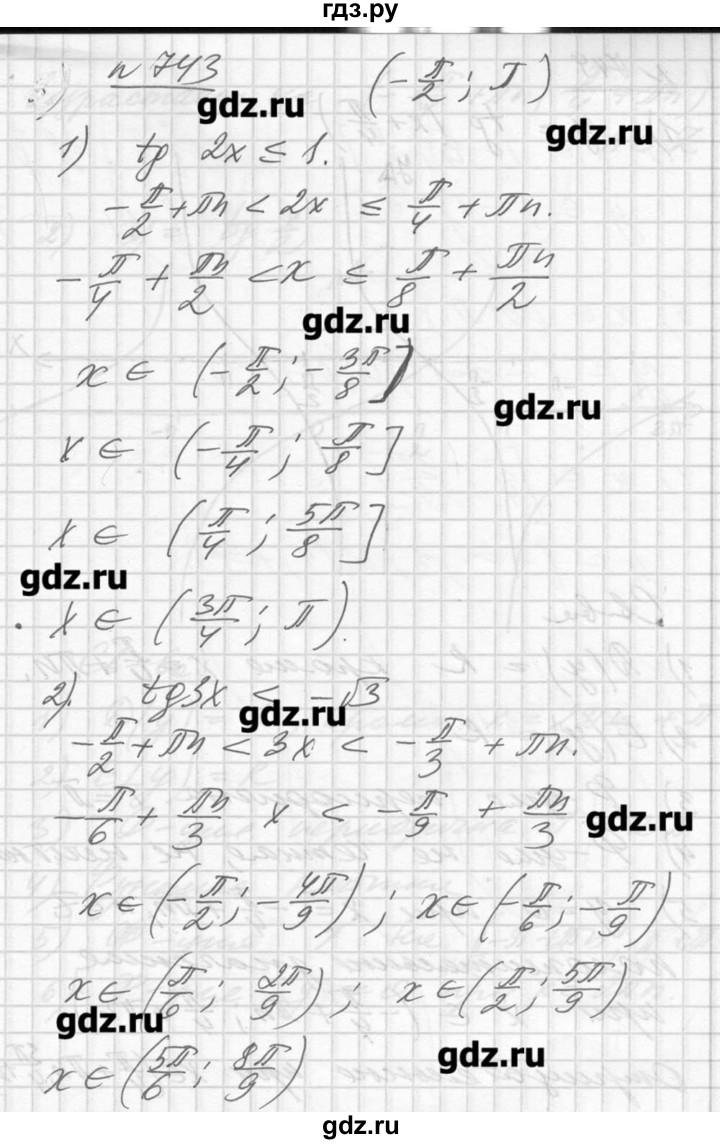 гдз.ру
n 743 (-π/2; π)
gdz.ru
gdz.ru
1) tg 2x ≤ 1.
-π/2 + πn < 2x ≤ π/4 + πn.
-π/4 + πn/2 < x ≤ π/8 + πn/2
gdz.ru
x ∈ (-π/2; -3π/8]
gdz.ru
x ∈ (-π/4; π/8]
x ∈ (π/4; 5π/8]
gdz.ru
x ∈ (3π/4; π).
2). tg3x < -√3
gdz.ru
-π/2 + πn < 3x < -π/3 + πn.
-π/6 + πn/3 x < -π/9 + πn/3
gdz.ru
x ∈ (-π/2; -4π/9); x ∈ (-π/6; -π/9)
x ∈ (π/6; 2π/9); x ∈ (π/2; 5π/9)
gdz.ru
x ∈ (5π/6; 8π/9)
gdz.ru
gdz.ru